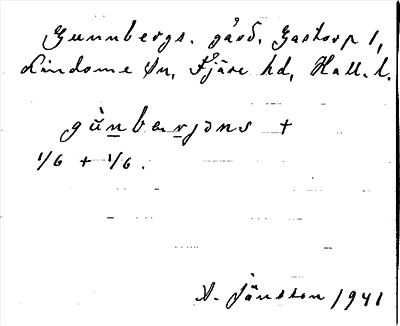 Gunnbergs. gård, Gastorp 1,
Lindome sn, Fjäre hd, Hall. l.
gùnbærjəns +
1/6 + 1/6.
A. Jansson 1941